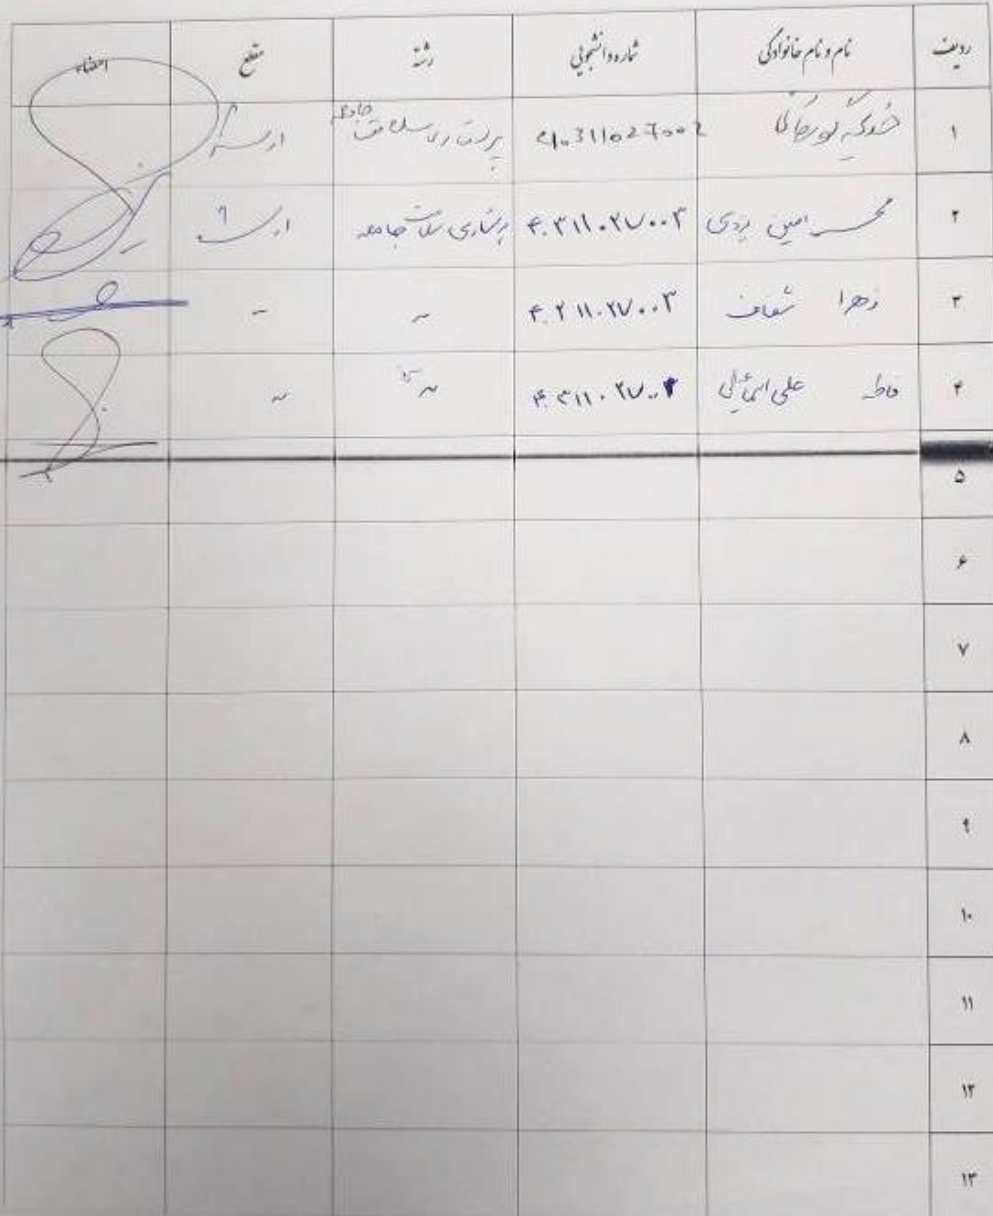 ردیف نام و نام خانوادگی شماره دانشجویی رشته مقطع امضاء
۱ 40311027002 پرستاری سلامت جامعه ارشد
۲ محمد امین یزدی ۴۰۳۱۱۰۲۷۰۰۳ پرستاری سلامت جامعه ارشد
۳ زهرا شفاف ۴۰۲۱۱۰۲۷۰۰۳ " "
۴ فاطمه علی اسماعیلی " "
۵
۶
۷
۸
۹
۱۰
۱۱
۱۲
۱۳